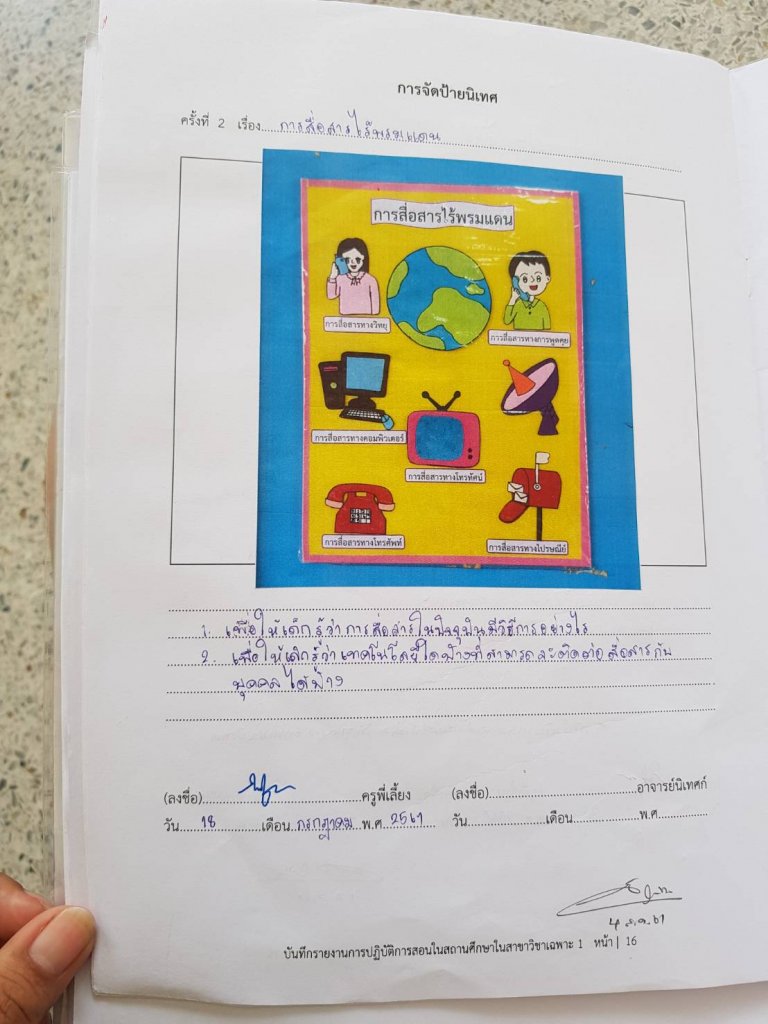 การจัดป้ายนิเทศ
ครั้งที่ 2 เรื่อง...การสื่อสารไร้พรมแดน
การสื่อสารไร้พรมแดน
การสื่อสารทางวิทยุ
การสื่อสารทางการพูดคุย
การสื่อสารทางคอมพิวเตอร์
การสื่อสารทางโทรทัศน์
การสื่อสารทางโทรศัพท์
การสื่อสารทางไปรษณีย์
1. เพื่อให้เด็กรู้ว่าการสื่อสารในปัจจุบันมีวิธีการอย่างไร
2. เพื่อให้เด็กรู้ว่าเทคโนโลยีใดบ้างที่สามารถจะติดต่อสื่อสารกับ
บุคคลได้บ้าง
(ลงชื่อ)....................ครูพี่เลี้ยง (ลงชื่อ)....................อาจารย์นิเทศก์
วัน...18...เดือน กรกฎาคม พ.ศ 2561 วัน...............เดือน...............พ.ศ...............
บันทึกรายงานการปฏิบัติการสอนในสถานศึกษาในสาขาวิชาเฉพาะ 1 หน้า | 16